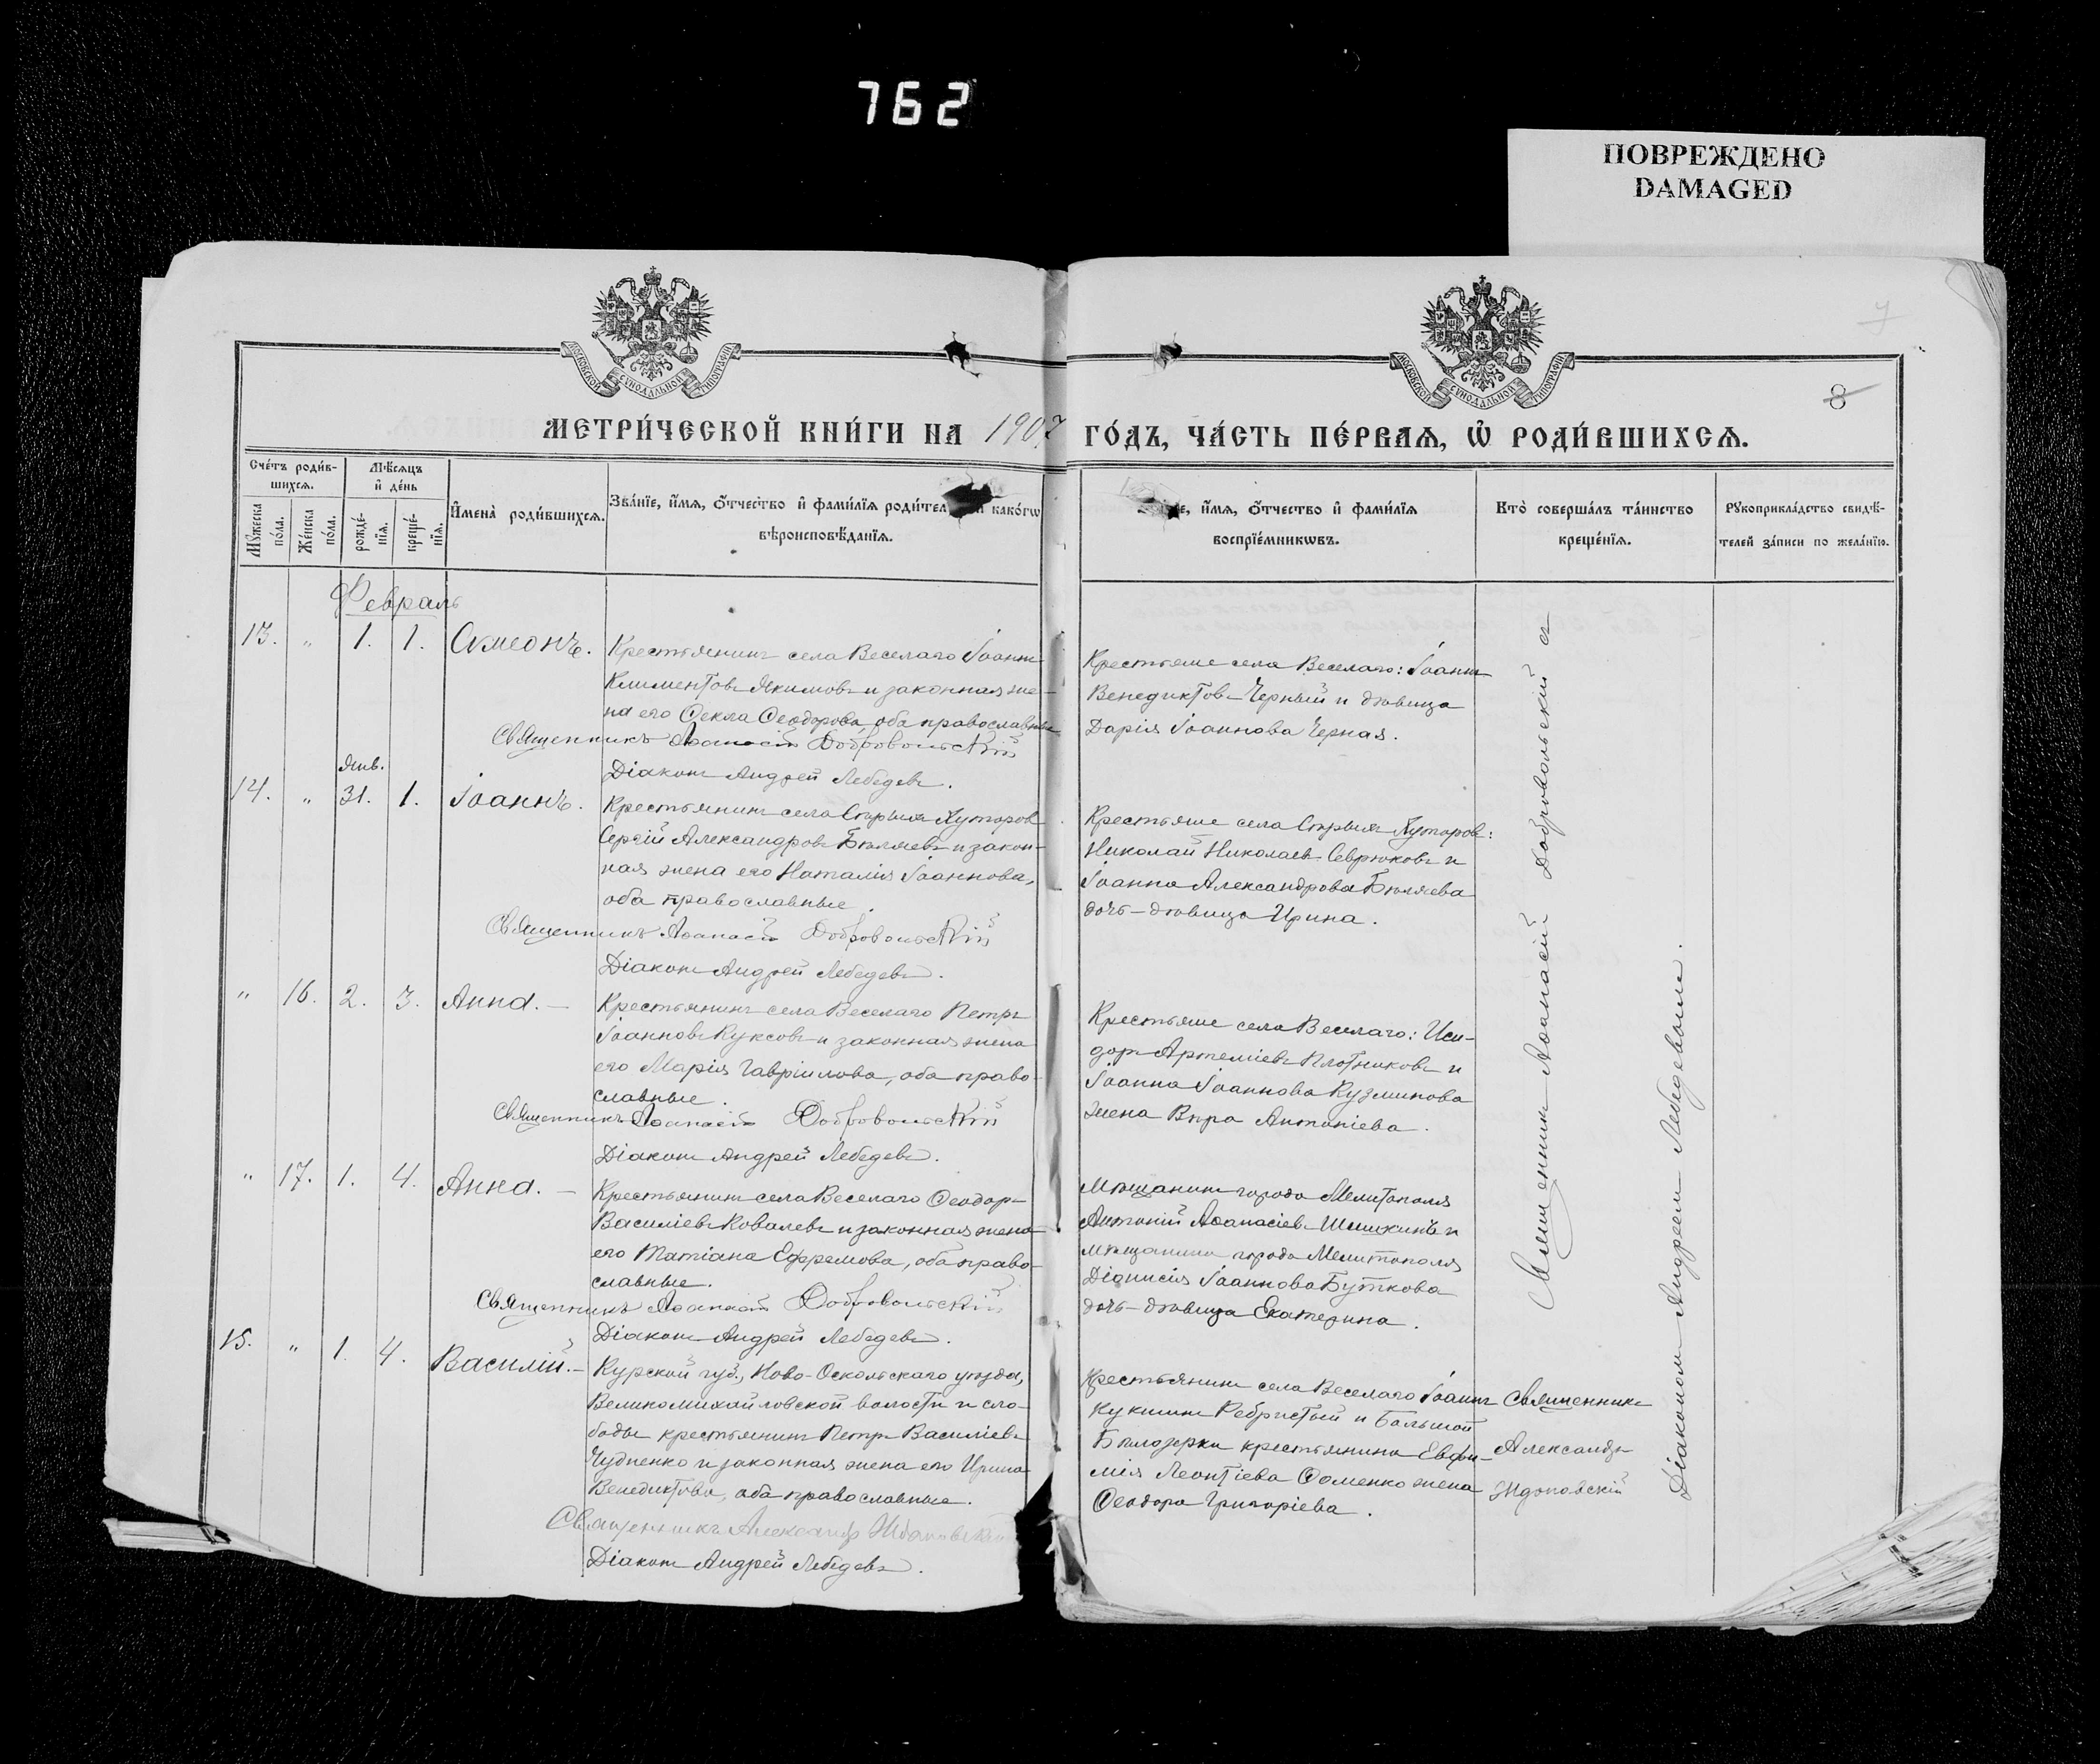 762
ПОВРЕЖДЕНО
DAMAGED
МОСКОВСКОЙ СѴНОДАЛЬНОЙ ТИПОГРАФІИ
МОСКОВСКОЙ СѴНОДАЛЬНОЙ ТИПОГРАФІИ
7
8
МЕТРИ́ЧЕСКОЙ КНИ́ГИ НА 1907 ГО́ДЪ, ЧА́СТЬ ПЕ́РВАѦ, Ѡ҆ РОДИ́ВШИХСѦ.
Сче́тъ роди́в-
шихсѧ.
Мꙋ́жеска по́ла.
Же́нска по́ла.
Мѣ́сѧцъ
и҆ де́нь
рожде́-
нїѧ.
креще́-
нїѧ.
И҆мена̀ роди́вшихсѧ.
Зва́нїе, и҆́мѧ, ѻ҆́тчество и҆ фами́лїѧ родител како́гѡ
вѣроисповѣ́данїѧ.
е, и҆́мѧ, ѻ҆́тчество и҆ фами́лїѧ
воспрїе́мникѡвъ.
Кто̀ соверша́лъ та́инство
креще́нїѧ.
Рꙋкоприкла́дство свидѣ́-
телей за́писи по жела́нїю.
Февраль
13. „ 1. 1. Сѵмеонъ.
Крестьянинъ села Веселаго Іоаннъ
Климентовъ Якимовъ и законная же-
на его Ѳекла Ѳеодорова, оба православные
Священникъ Аѳанасій Добровольскій
Діаконъ Андрей Лебедевъ.
Крестьяне села Веселаго: Іоаннъ
Венедиктовъ Черный и дѣвица
Дарія Іоаннова Черная.
Янв.
14. „ 31. 1. Іоаннъ.
Крестьянинъ села Сѣрыхъ Хуторовъ
Сергій Александровъ Бѣляевъ и закон-
ная жена его Наталія Іоаннова,
оба православные.
Священникъ Аѳанасій Добровольскій
Діаконъ Андрей Лебедевъ.
Крестьяне села Сѣрыхъ Хуторовъ:
Николай Николаевъ Севрюковъ и
Іоанна Александрова Бѣляева
дочь-дѣвица Ирина.
„ 16. 2. 3. Анна. —
Крестьянинъ села Веселаго Петръ
Іоанновъ Куксовъ и законная жена
его Марія Гавріилова, оба право-
славные.
Священникъ Аѳанасій Добровольскій
Діаконъ Андрей Лебедевъ.
Крестьяне села Веселаго: Иси-
доръ Артеміевъ Плотниковъ и
Іоанна Іоаннова Кузминова
жена Вѣра Антоніева.
„ 17. 1. 4. Анна. —
Крестьянинъ села Веселаго Ѳеодоръ
Василіевъ Ковалевъ и законная жена
его Татіана Ефремова, оба право-
славные.
Священникъ Аѳанасій Добровольскій
Діаконъ Андрей Лебедевъ.
Мѣщанинъ города Мелитополя
Антоній Аѳанасіевъ Шишкинъ и
мѣщанина города Мелитополя
Діонисія Іоаннова Буткова
дочь-дѣвица Екатерина.
15. „ 1. 4. Василій. —
Курской губ., Ново-Оскольскаго уѣзда,
Великомихайловской волости и сло-
боды крестьянинъ Петръ Василіевъ
Чудненко и законная жена его Ирина
Венедиктова, оба православные.
Священникъ Александръ Ждановскій
Діаконъ Андрей Лебедевъ.
Крестьянинъ села Веселаго Іоаннъ
Ребристый и Большой
Бѣлозерки крестьянина Евфи-
мія Леонтіева Ѳоменко жена
Ѳеодора Григоріева.
Священникъ
Александръ
Ждановскій
Священникъ Аѳанасій Добровольскій съ
Діакономъ Андреемъ Лебедевымъ.